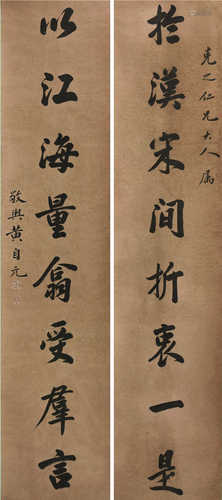 克之仁兄大人属
於汉宋间折衷一是
以江海量翕受群言
敬舆黄自元